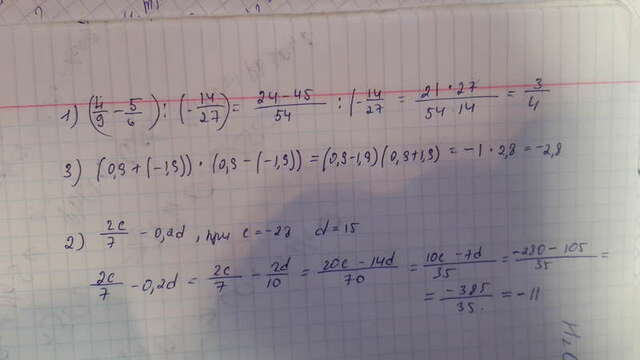 1) (4/9 - 5/6) : (-14/27) = 24-45/54 : (-14/27 = 21·27/54 14 = 3/4
3) (0,9 + (-1,9)) · (0,9 - (-1,9)) = (0,9-1,9)(0,9+1,9) = -1 · 2,8 = -2,8
2) 2c/7 - 0,2d, при c=-28 d=15
2c/7 - 0,2d = 2c/7 - 2d/10 = 20c - 14d/70 = 10c - 7d/35 = -280 - 105/35 =
= -385/35 = -11